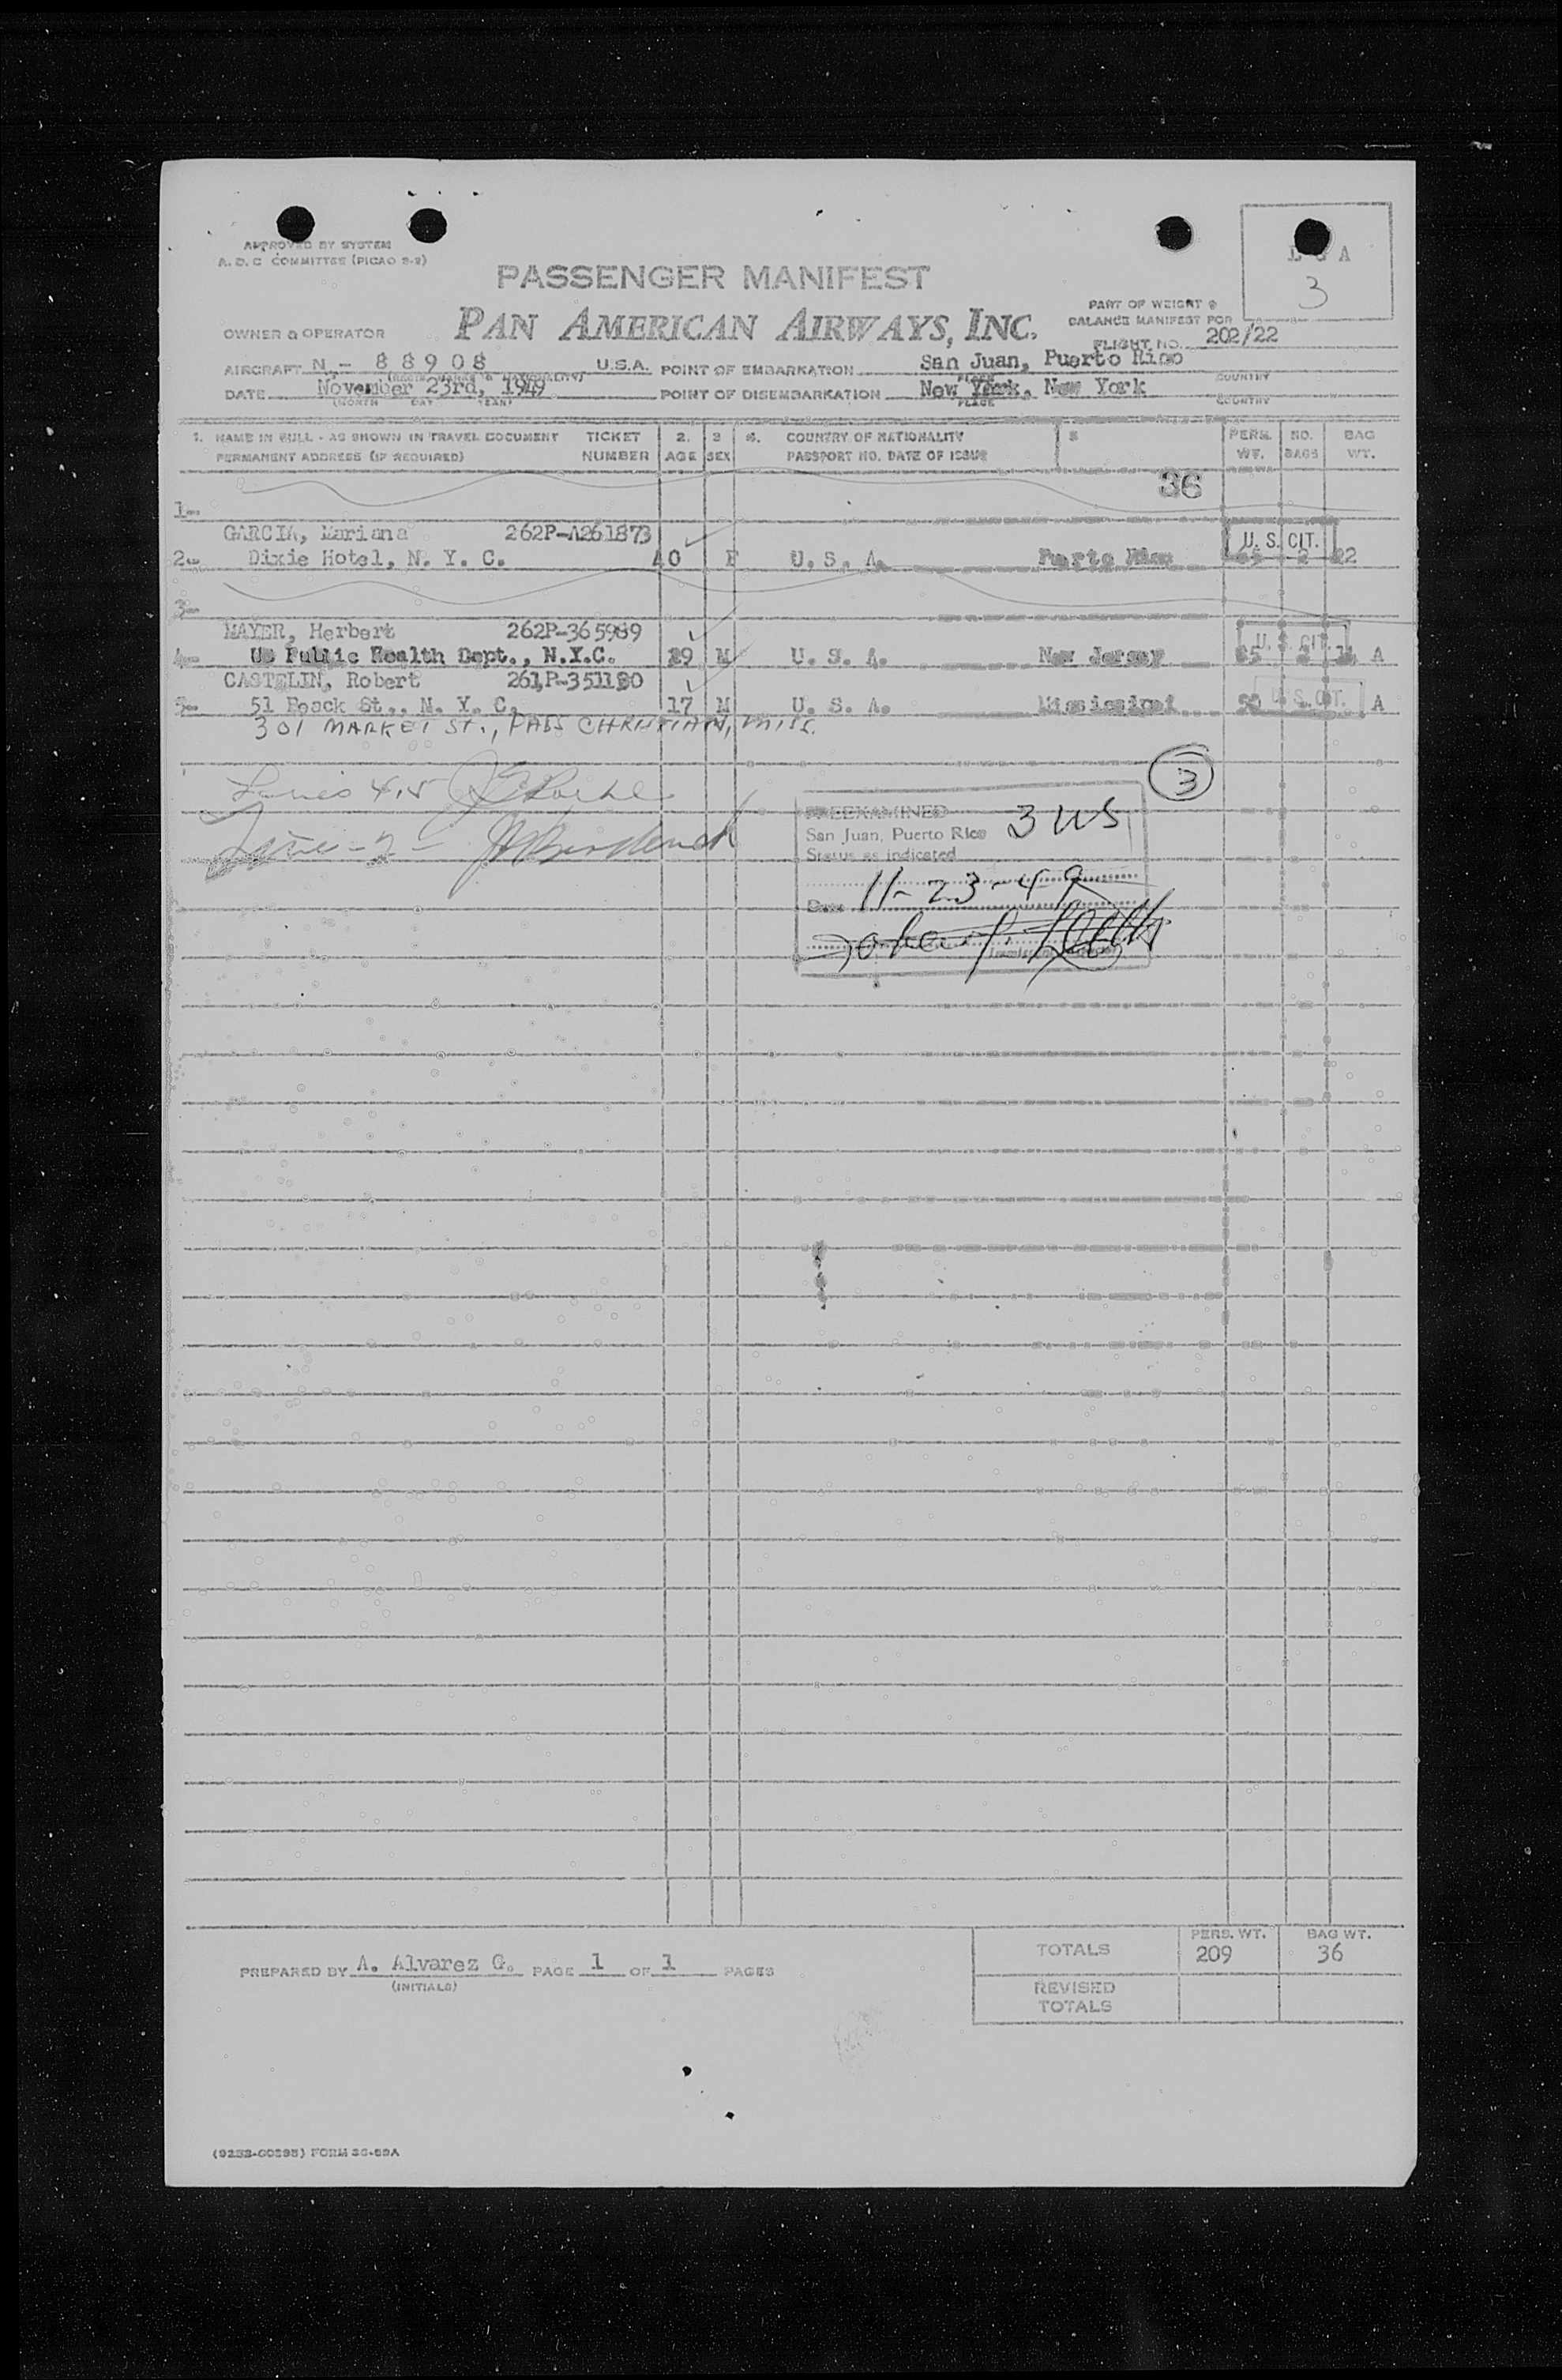 APPROVED BY SYSTEM
A. D. C COMMITTEE (PICAO 2-2)
PASSENGER MANIFEST
PAN AMERICAN AIRWAYS, INC.
L A
3
PART OF WEIGHT &
BALANCE MANIFEST FOR
FLIGHT NO. 202/22
OWNER & OPERATOR
AIRCRAFT N - 88908 U.S.A. POINT OF EMBARKATION San Juan, Puerto Rico
PLACE COUNTRY
DATE November 23rd, 1949 POINT OF DISEMBARKATION New York, New York
(MONTH DAY YEAR) PLACE COUNTRY
1. NAME IN FULL - AS SHOWN IN TRAVEL DOCUMENT TICKET 2. 3 4. COUNTRY OF NATIONALITY 5 PERS. NO. BAG
PERMANENT ADDRESS (IF REQUIRED) NUMBER AGE SEX PASSPORT NO. DATE OF ISSUE WT. BAGS WT.
36
1-
GARCIA, Mariana 262P-A261873 U. S. CIT.
2- Dixie Hotel, N. Y. C. 40 F U. S. A. Puerto Rico 2 22
3-
MAYER, Herbert 262P-365989 U. S. CIT.
4- US Public Health Dept., N.Y.C. 29 M U. S. A. New Jersey A
CASTELIN, Robert 261P-351180 U. S. CIT.
5- 51 St., N. Y. C. 17 M U. S. A. Mississippi A
301 MARKET ST., PASS CHRISTIAN, MISS.
Lines 4,5
3
Line - 2 -
PREEXAMINED 3 US
San Juan, Puerto Rico
Status as indicated
Date 11-23-49
TOTALS PERS. WT. 209 BAG WT. 36
REVISED
TOTALS
PREPARED BY A. Alvarez G. PAGE 1 OF 1 PAGES
(INITIALS)
FORM